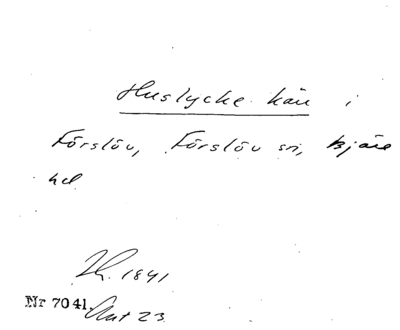 Huslycke kärr i
Förslöv, Förslöv sn, Bjäre
hd
Lh. 1841
Nr 7041. Akt 23